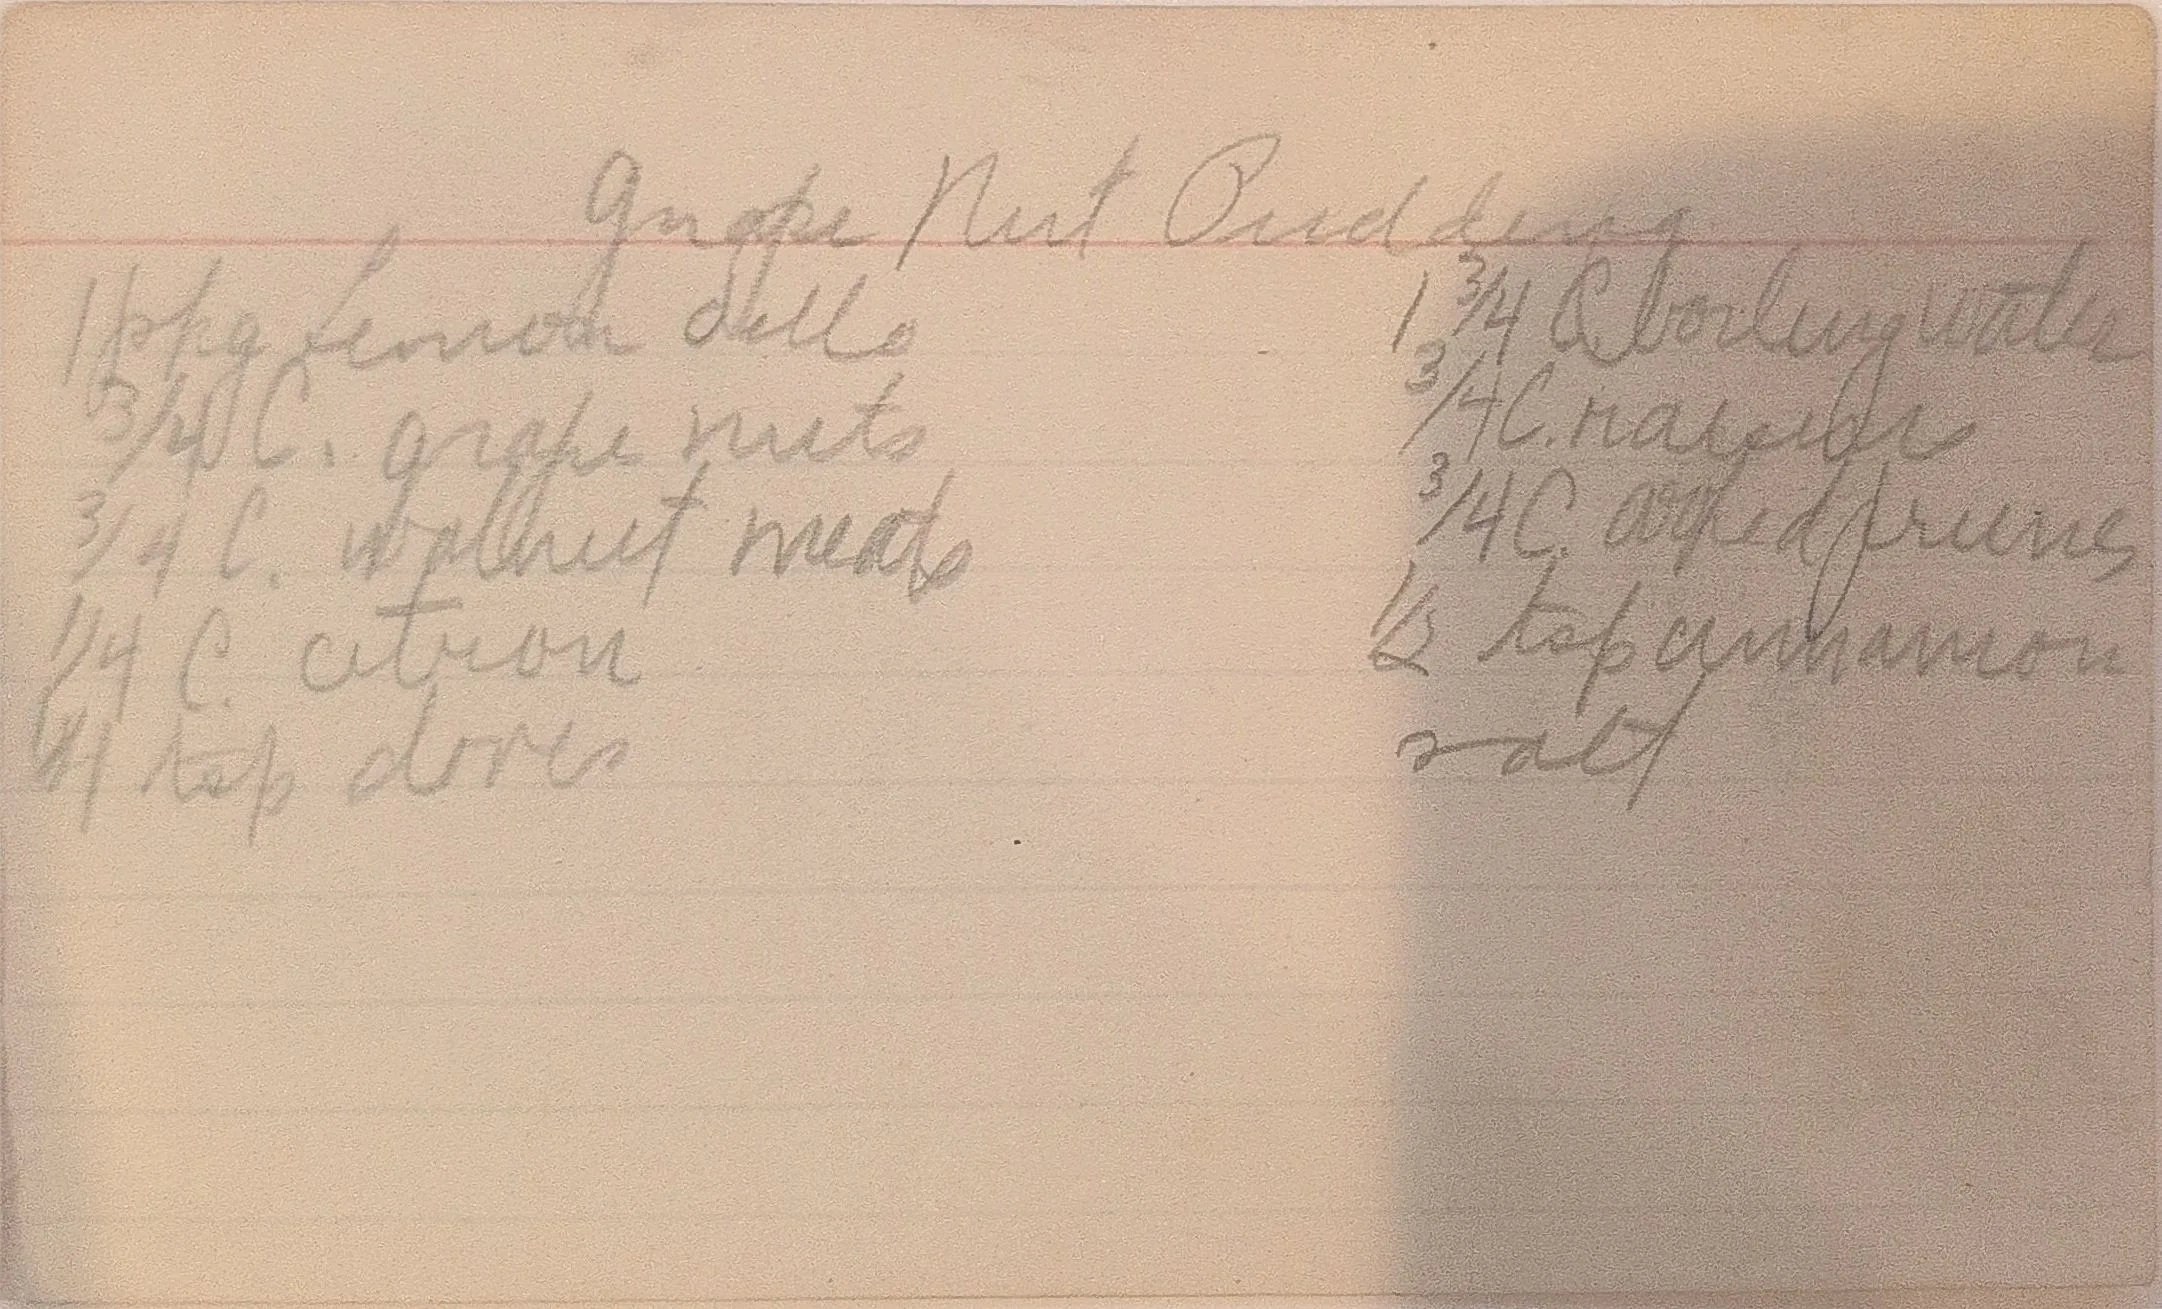 Grape Nut Pudding
1 pkg Lemon Jello
3/4 C. grape nuts
3/4 C. walnut meats
1/4 C. citron
1/4 tsp cloves
1 3/4 C. boiling water
3/4 C. raisins
3/4 C. prunes
1/2 tsp cinnamon
salt